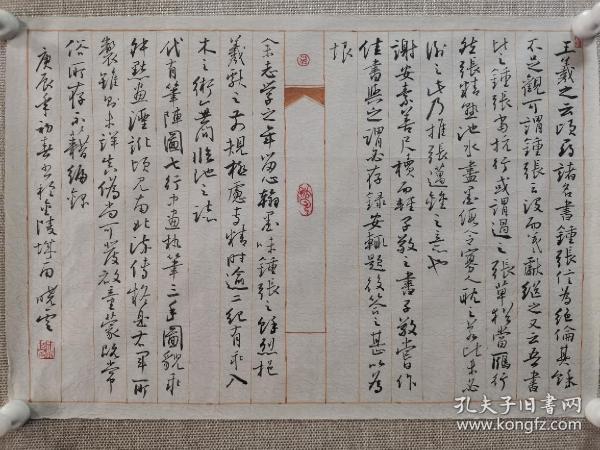 王羲之云頃尋諸名書鍾張信為絕倫其餘
不足觀可謂鍾張云沒而羲獻繼之又云吾書
比之鍾張當抗行或謂過之張草猶當雁行
然張精熟池水盡墨假令寡人耽之若此未必
謝之此乃推張邁鍾之意也
謝安素善尺牘而輕子敬之書子敬嘗作
佳書與之謂必存録安輒題後答之甚以為
恨
余志學之年留心翰墨味鍾張之餘烈挹
羲獻之前規極慮專精時逾二紀有乖入
木之術無間臨池之志
代有筆陣圖七行中畫執筆三手圖貌乖
舛點畫湮訛頃見南北流傳疑是右軍所
製雖則未詳真偽尚可發啟童蒙既常
俗所存不藉編錄
庚辰年初春书於金陵城西 晓雲
孔夫子旧书网
www.kongfz.com